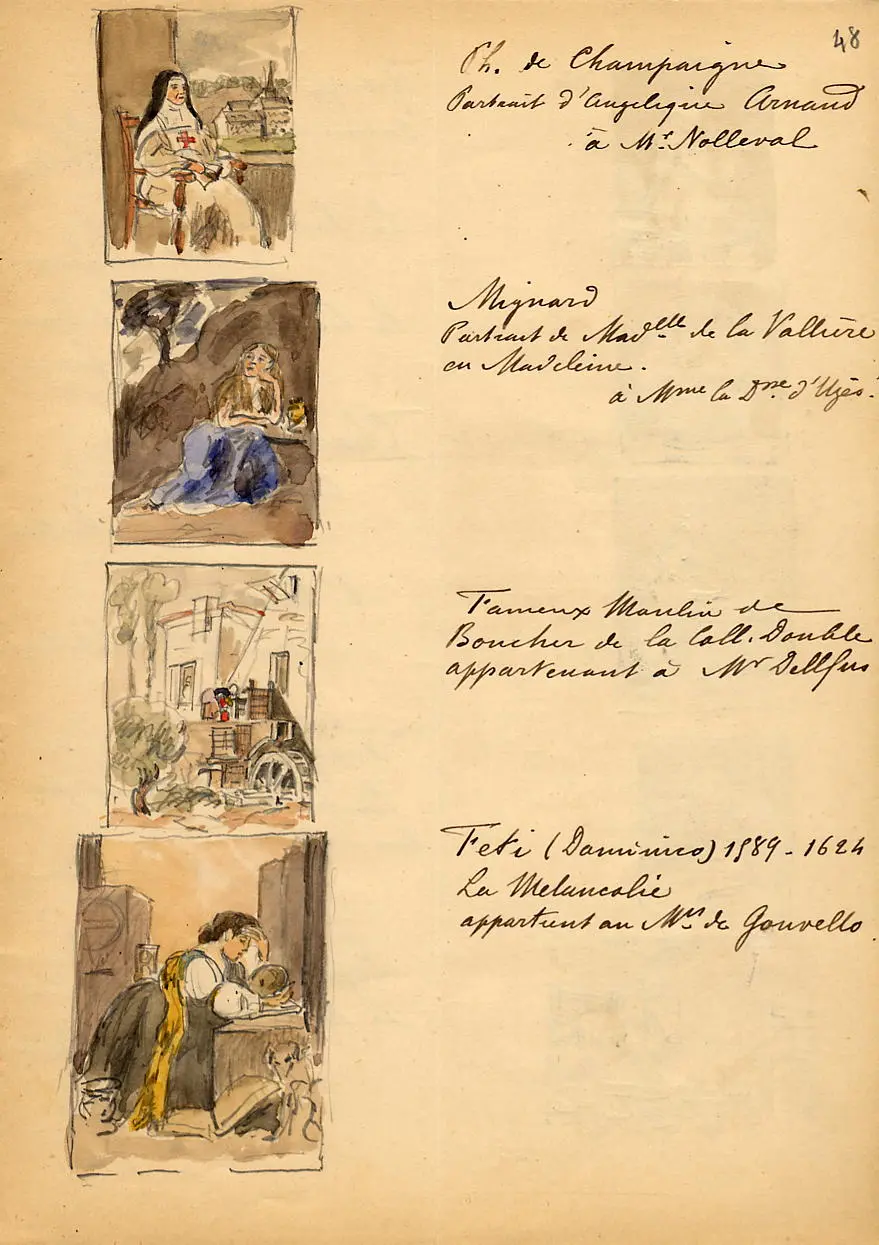 48
Ph. de Champaigne
Portrait d'Angelique Arnaud
à Mr. Nolleval
Mignard
Portrait de Madelle de la Vallière
en Madeleine.
à Mme la Dsse d'Uzès.
Fameux Moulin de
Boucher de la Coll. Double
appartenant à Mr Dollfus
Feti (Dominico) 1589 - 1624
La Melancolie
appartient au Mis de Gouvello